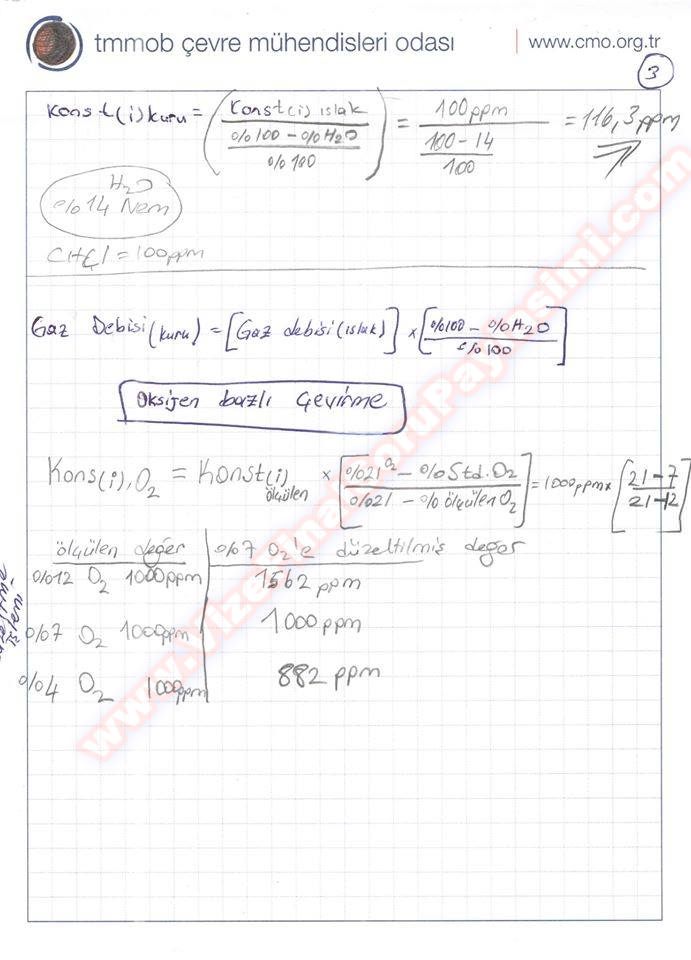 tmmob çevre mühendisleri odası | www.cmo.org.tr
3
Konst(i)kuru = (Konst(i) ıslak / (%100 - %H₂O / %100)) = 100ppm / (100-14 / 100) = 116,3 ppm
H₂O
%14 Nem
= 100ppm
Gaz Debisi(kuru) = [Gaz debisi(ıslak)] × [%100 - %H₂O / %100]
Oksijen bazlı Çevirme
Kons(i),O₂ = Konst(i) ölçülen × [%21 O₂ - % Std. O₂ / %21 - % ölçülen O₂] = 1000ppm × [21-7 / 21-12]
ölçülen değer | %7 O₂'e düzeltilmiş değer
%12 O₂ 1000ppm | 1562 ppm
%7 O₂ 1000ppm | 1000 ppm
%4 O₂ 1000ppm | 882 ppm
www.VizeFinalSoruPaylasimi.com